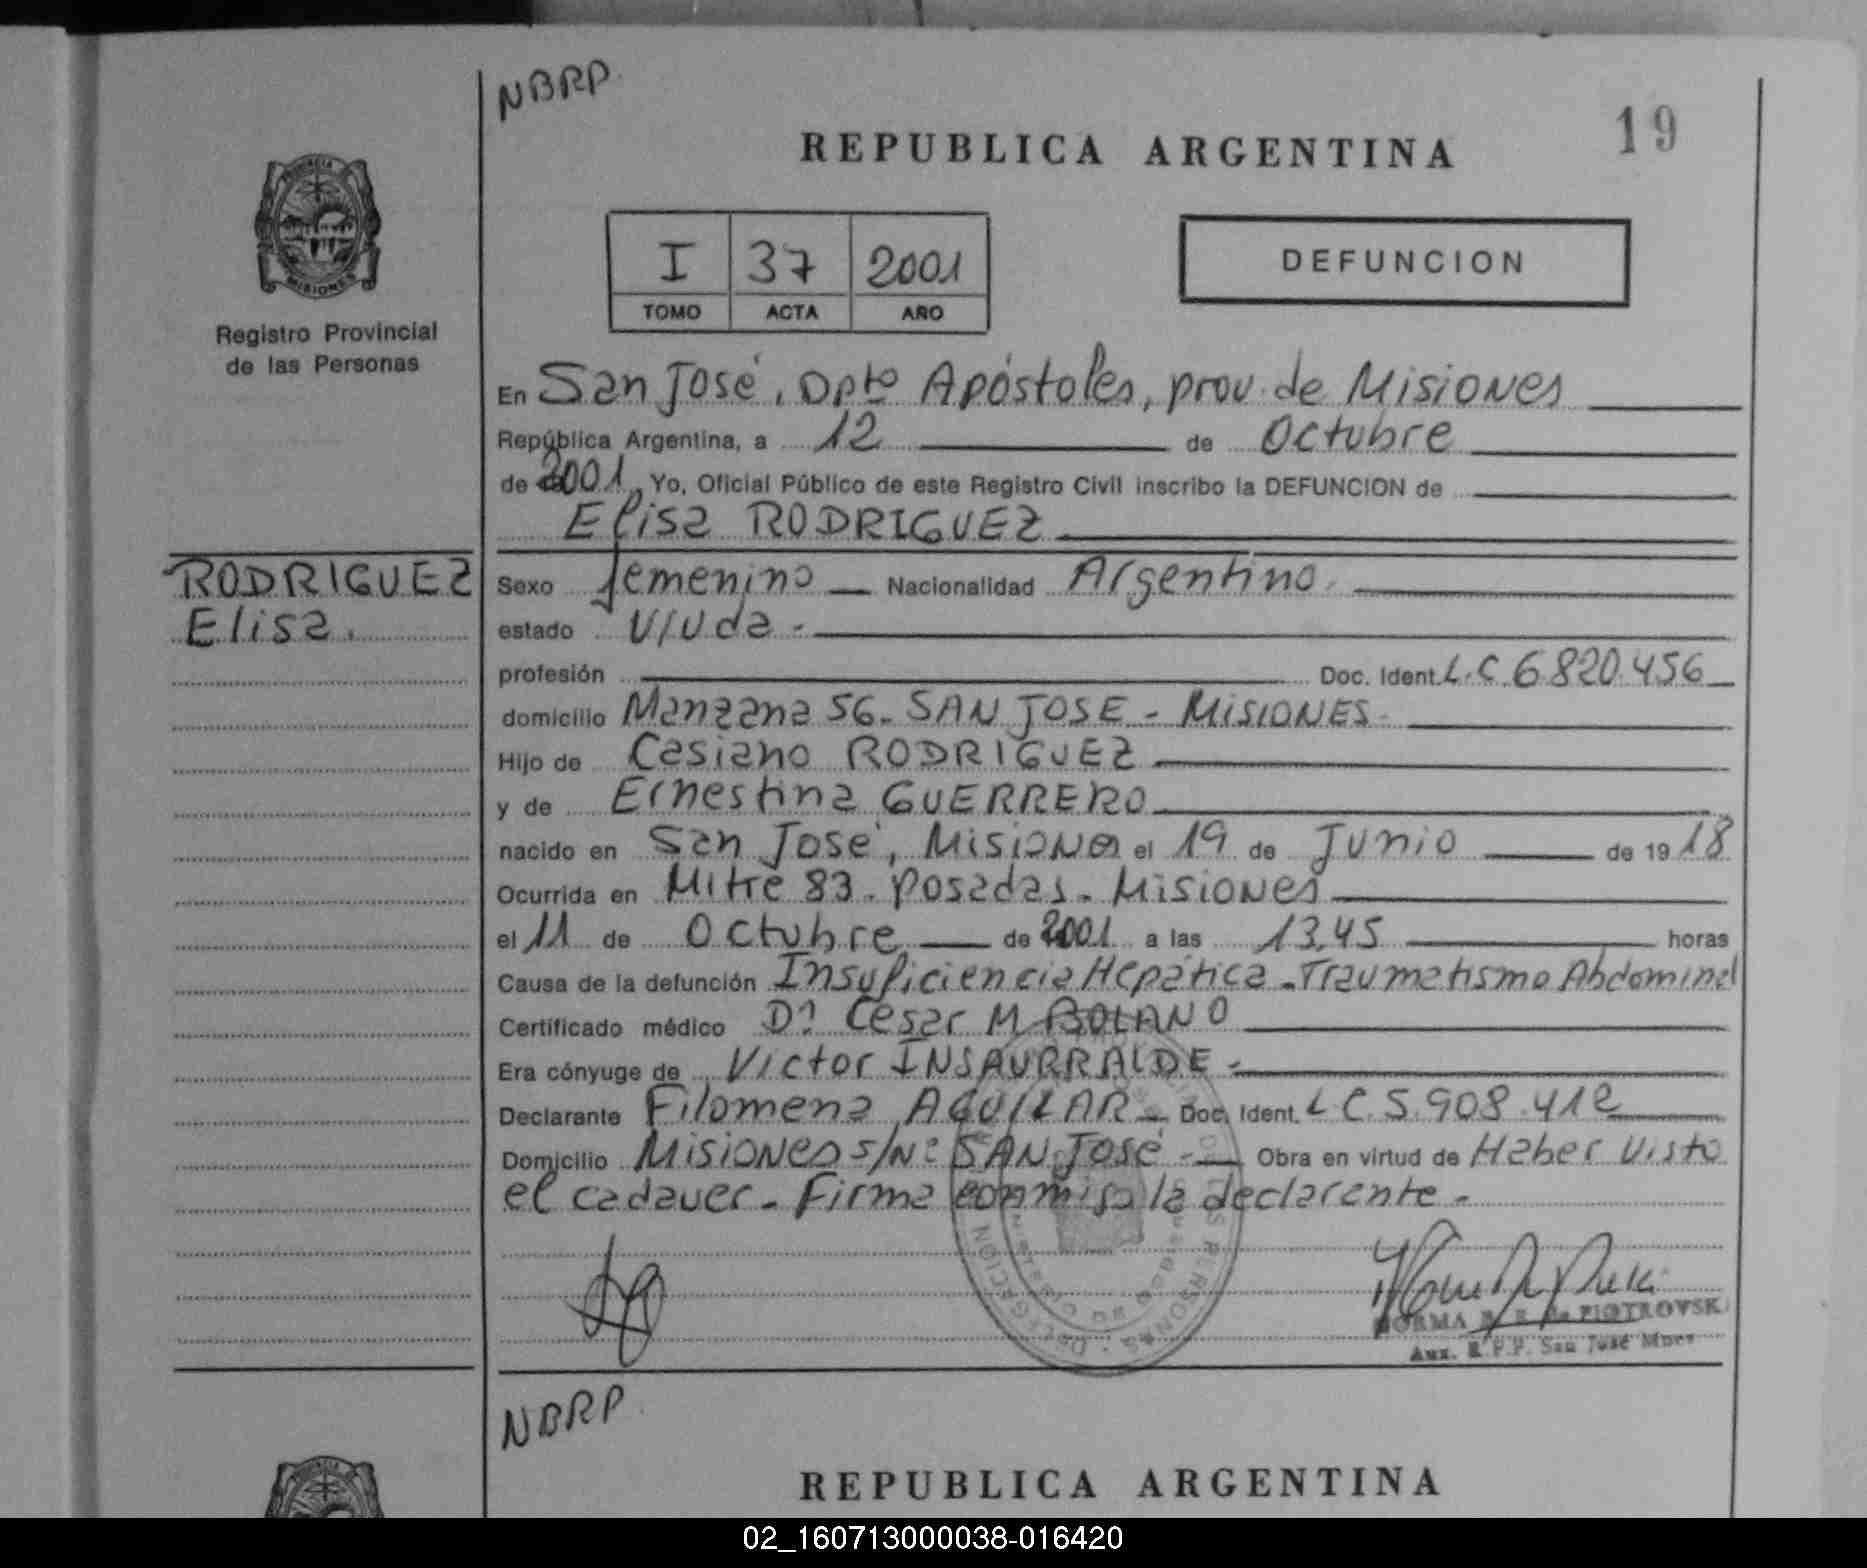 NBRP.
REPUBLICA ARGENTINA
19
PROVINCIA
MISIONES
Registro Provincial
de las Personas
I 37 2001
TOMO ACTA AÑO
DEFUNCION
En San José, Dpto Apóstoles, prov. de Misiones
República Argentina, a 12 de Octubre
de 2001 Yo, Oficial Público de este Registro Civil inscribo la DEFUNCION de
Elisa RODRIGUEZ
RODRIGUEZ
Elisa.
Sexo femenino Nacionalidad Argentino.
estado Viuda -
profesión Doc. Ident. L.C 6.820.456
domicilio Manzana 56 - SAN JOSE - MISIONES -
Hijo de Casiano RODRIGUEZ
y de Ernestina GUERRERO
nacido en San José, Misiones el 19 de Junio de 19 18
Ocurrida en Mitre 83 - Posadas - Misiones
el 11 de Octubre de 2001 a las 13.45 horas
Causa de la defunción Insuficiencia Hepática - Traumatismo Abdominal
Certificado médico Dr Cesar M BOLANO
Era cónyuge de Victor INSAURRALDE -
Declarante Filomena AGUILAR - Doc. Ident. L C. 5.908.412
Domicilio Misiones s/Nº SAN JOSÉ - Obra en virtud de Haber Visto
el cadaver - Firma conmigo la declarante -
NORMA de PIOTROVSKI
Aux. R.P.P. San José Mnes
NBRP.
REPUBLICA ARGENTINA
02_160713000038-016420